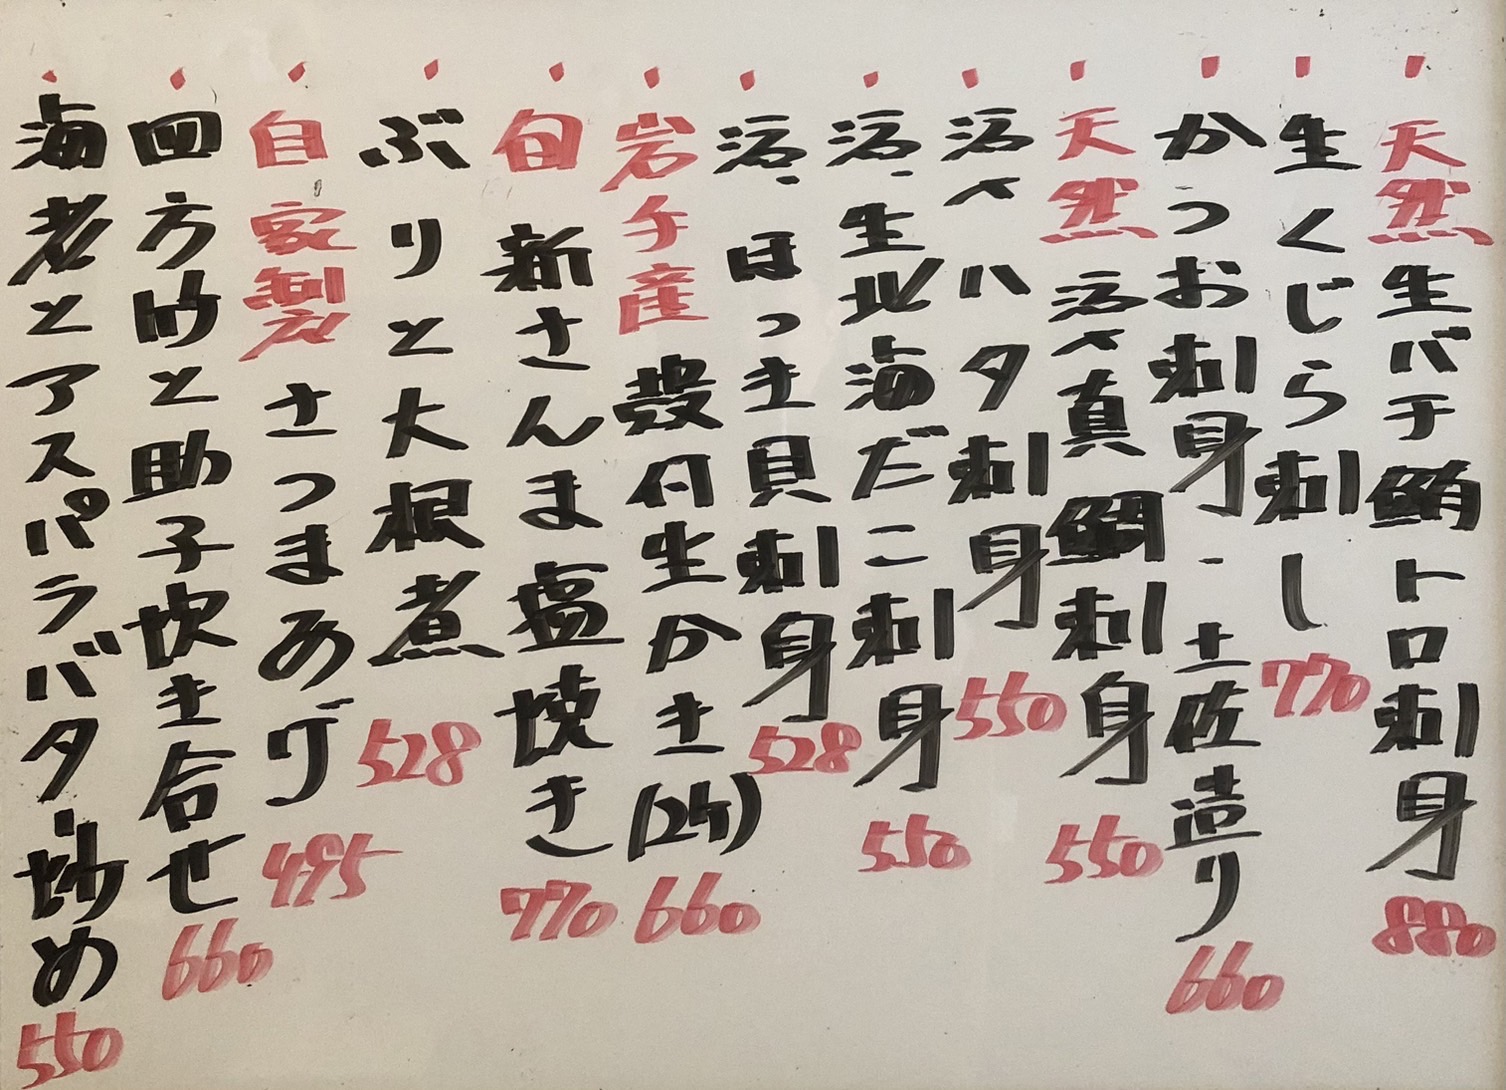 天然生バチ鮪トロ刺身 880
生くじら刺し 770
かつお刺身・土佐造り 660
天然活〆真鯛刺身 550
活〆ハタ刺身 550
活・生北海だこ刺身 550
活・ほっき貝刺身 528
岩手産殻付生かき(2ケ) 660
旬新さんま塩焼き 770
ぶりと大根煮 528
自家製さつまあげ 495
四方竹と助子炊き合せ 660
海老とアスパラバター炒め 550